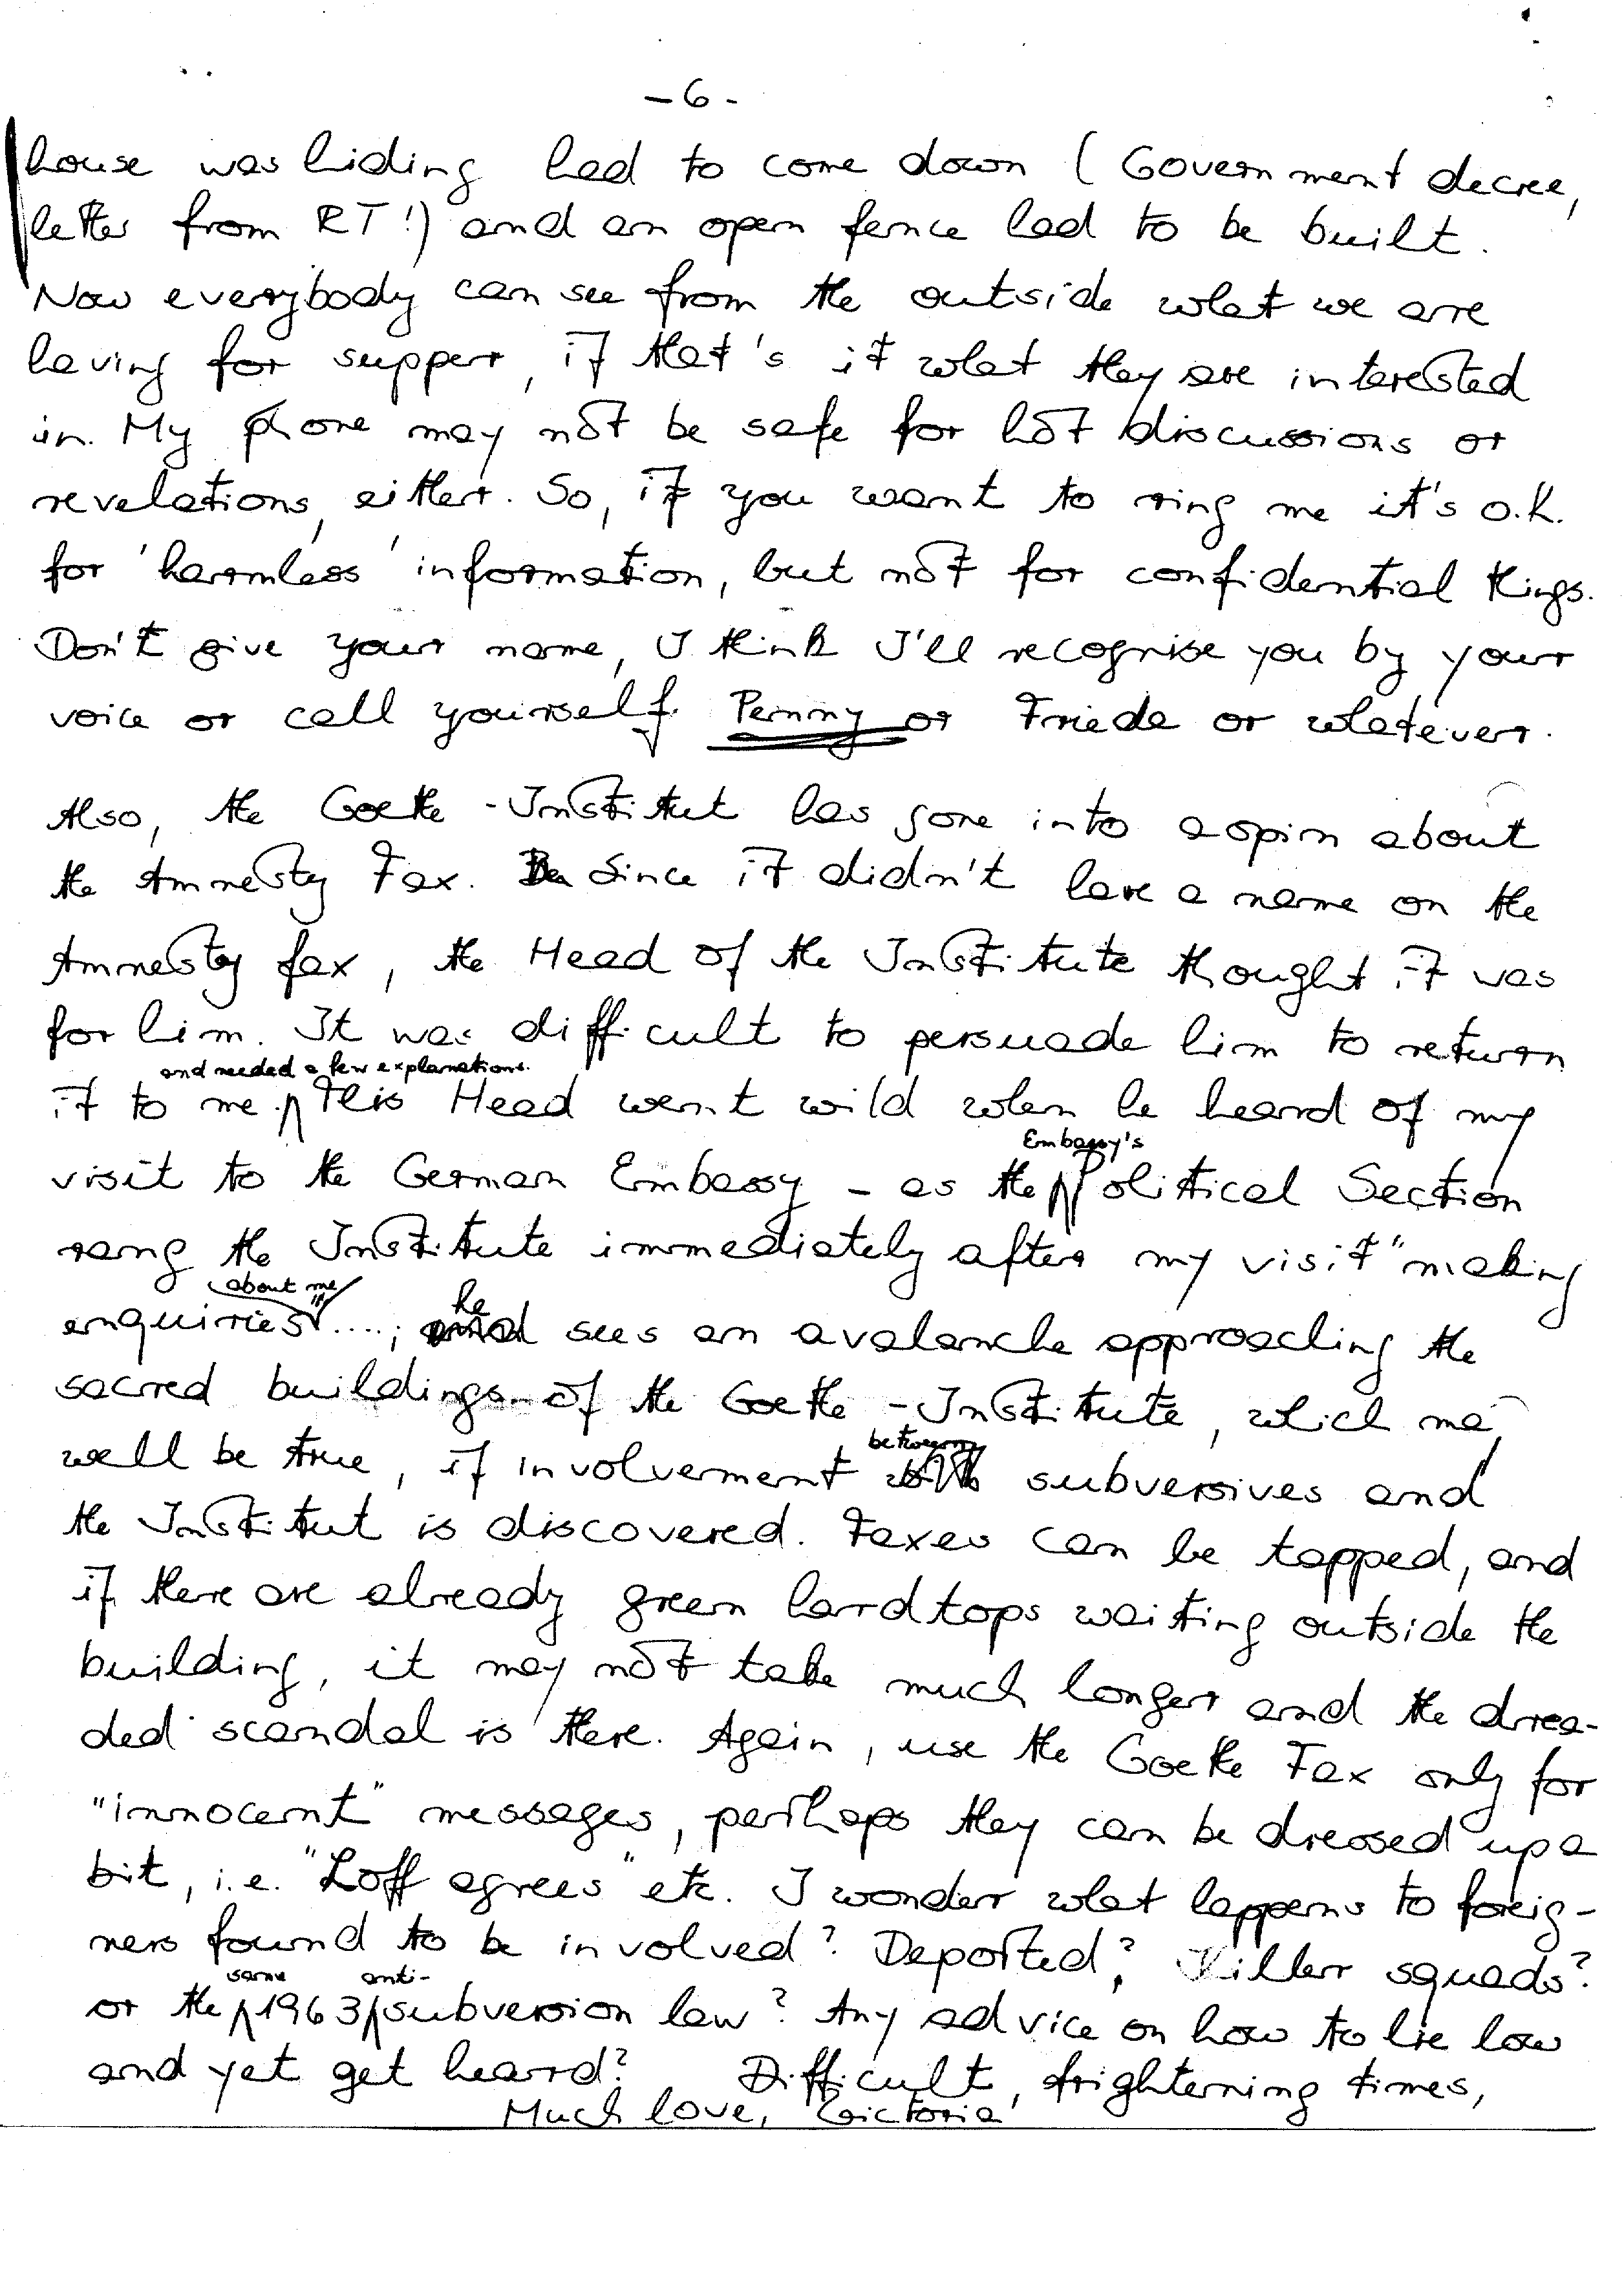 - 6 -
house was hiding had to come down (Government decree,
letter from RT!) and an open fence had to be built.
Now everybody can see from the outside what we are
having for supper, if that's it what they are interested
in. My phone may not be safe for hot discussions or
revelations, either. So, if you want to ring me it's o.k.
for 'harmless' information, but not for confidential things.
Don't give your name, I think I'll recognise you by your
voice or call yourself Penny or Frieda or whatever.
Also, the Goethe-Institut has gone into a spin about
the Amnesty Fax. Since it didn't have a name on the
Amnesty fax, the Head of the Institute thought it was
for him. It was difficult to persuade him to return
and needed a few explanations.
it to me. This Head went wild when he heard of my
Embassy's
visit to the German Embassy - as the Political Section
rang the Institute immediately after my visit "making
about me
enquiries"....; he sees an avalanche approaching the
sacred buildings of the Goethe-Institute, which may
between
well be true, if involvement subversives and
the Institut is discovered. Faxes can be tapped, and
if there are already green hardtops waiting outside the
building, it may not take much longer and the drea-
ded scandal is there. Again, use the Goethe Fax only for
"innocent" messages, perhaps they can be dressed up a
bit, i.e. "Loff agrees" etc. I wonder what happens to foreig-
ners found to be involved? Deported? Killer squads?
same anti-
or the 1963 subversion law? Any advice on how to lie low
and yet get heard? Difficult, frightening times,
Much love, Victoria